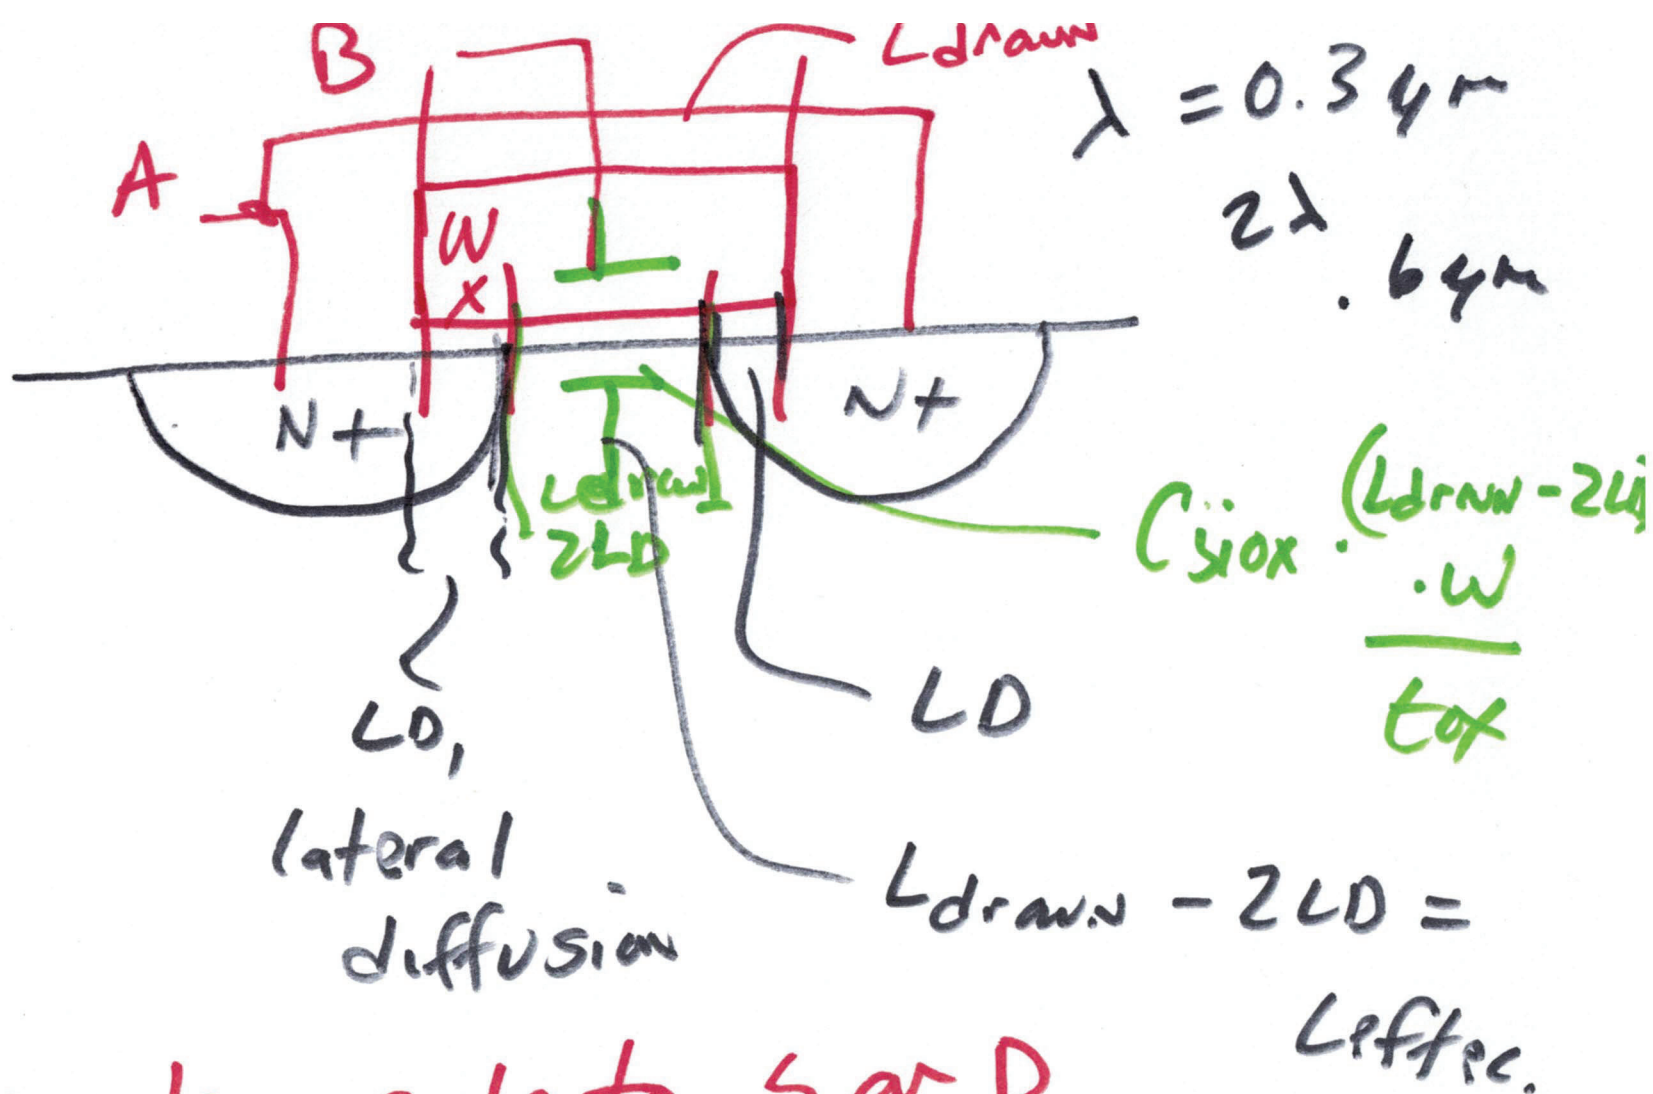 B
Ldrawn
λ = 0.3 μm
A
2λ
.6 μm
W
X
N+
N+
Ldrawn
2LD
Csiox · (Ldrawn - 2LD)
· W
tox
LD
LD,
lateral
diffusion
Ldrawn - 2LD =
Leffec.